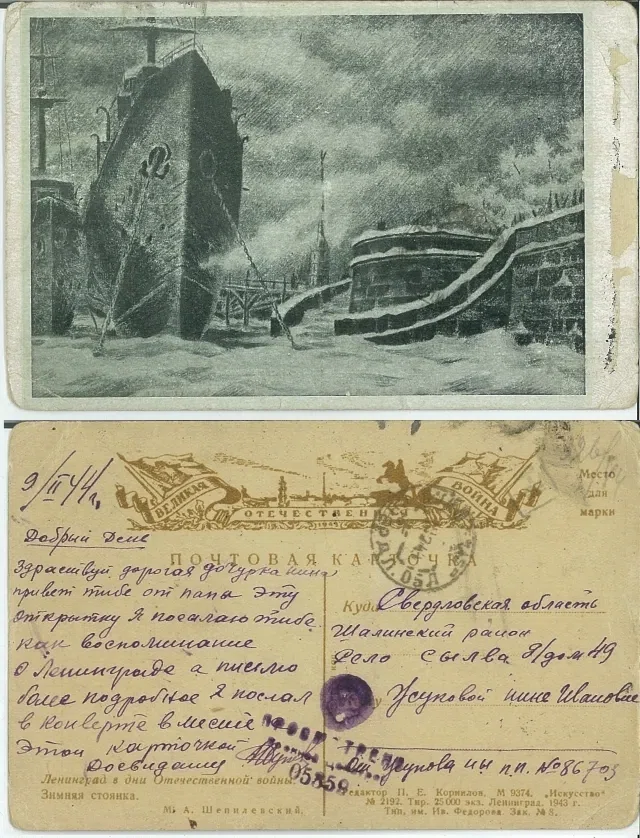 9/II 44 г.
ВЕЛИКАЯ
ОТЕЧЕСТВЕННАЯ
ВОЙНА
Место
для
марки
Добрый День
ПОЧТОВАЯ КАРТОЧКА
Здраствуй дорогая дочурка нина
привет тибе от папы Эту
открытку Я посылаю тибе
как воспоминание
о Ленинграде а письмо
более подробное Я послал
в конверте вместе
Этой карточкой
Досвидание
Куда Свердловская область
Шалинский район
Село Сылва 8/дом 49
Усуповой нине Ивановне
от Усупова ны п.п. № 86703
ПРОСМОТРЕНО
05859
Ленинград в дни Отечественной войны.
Зимняя стоянка.
М. А. Шепилевский.
Редактор П. Е. Корнилов. М 9374. „Искусство"
№ 2192. Тир. 25 000 экз. Ленинград. 1943 г.
Тип. им. Ив. Федорова. Зак. № 8.